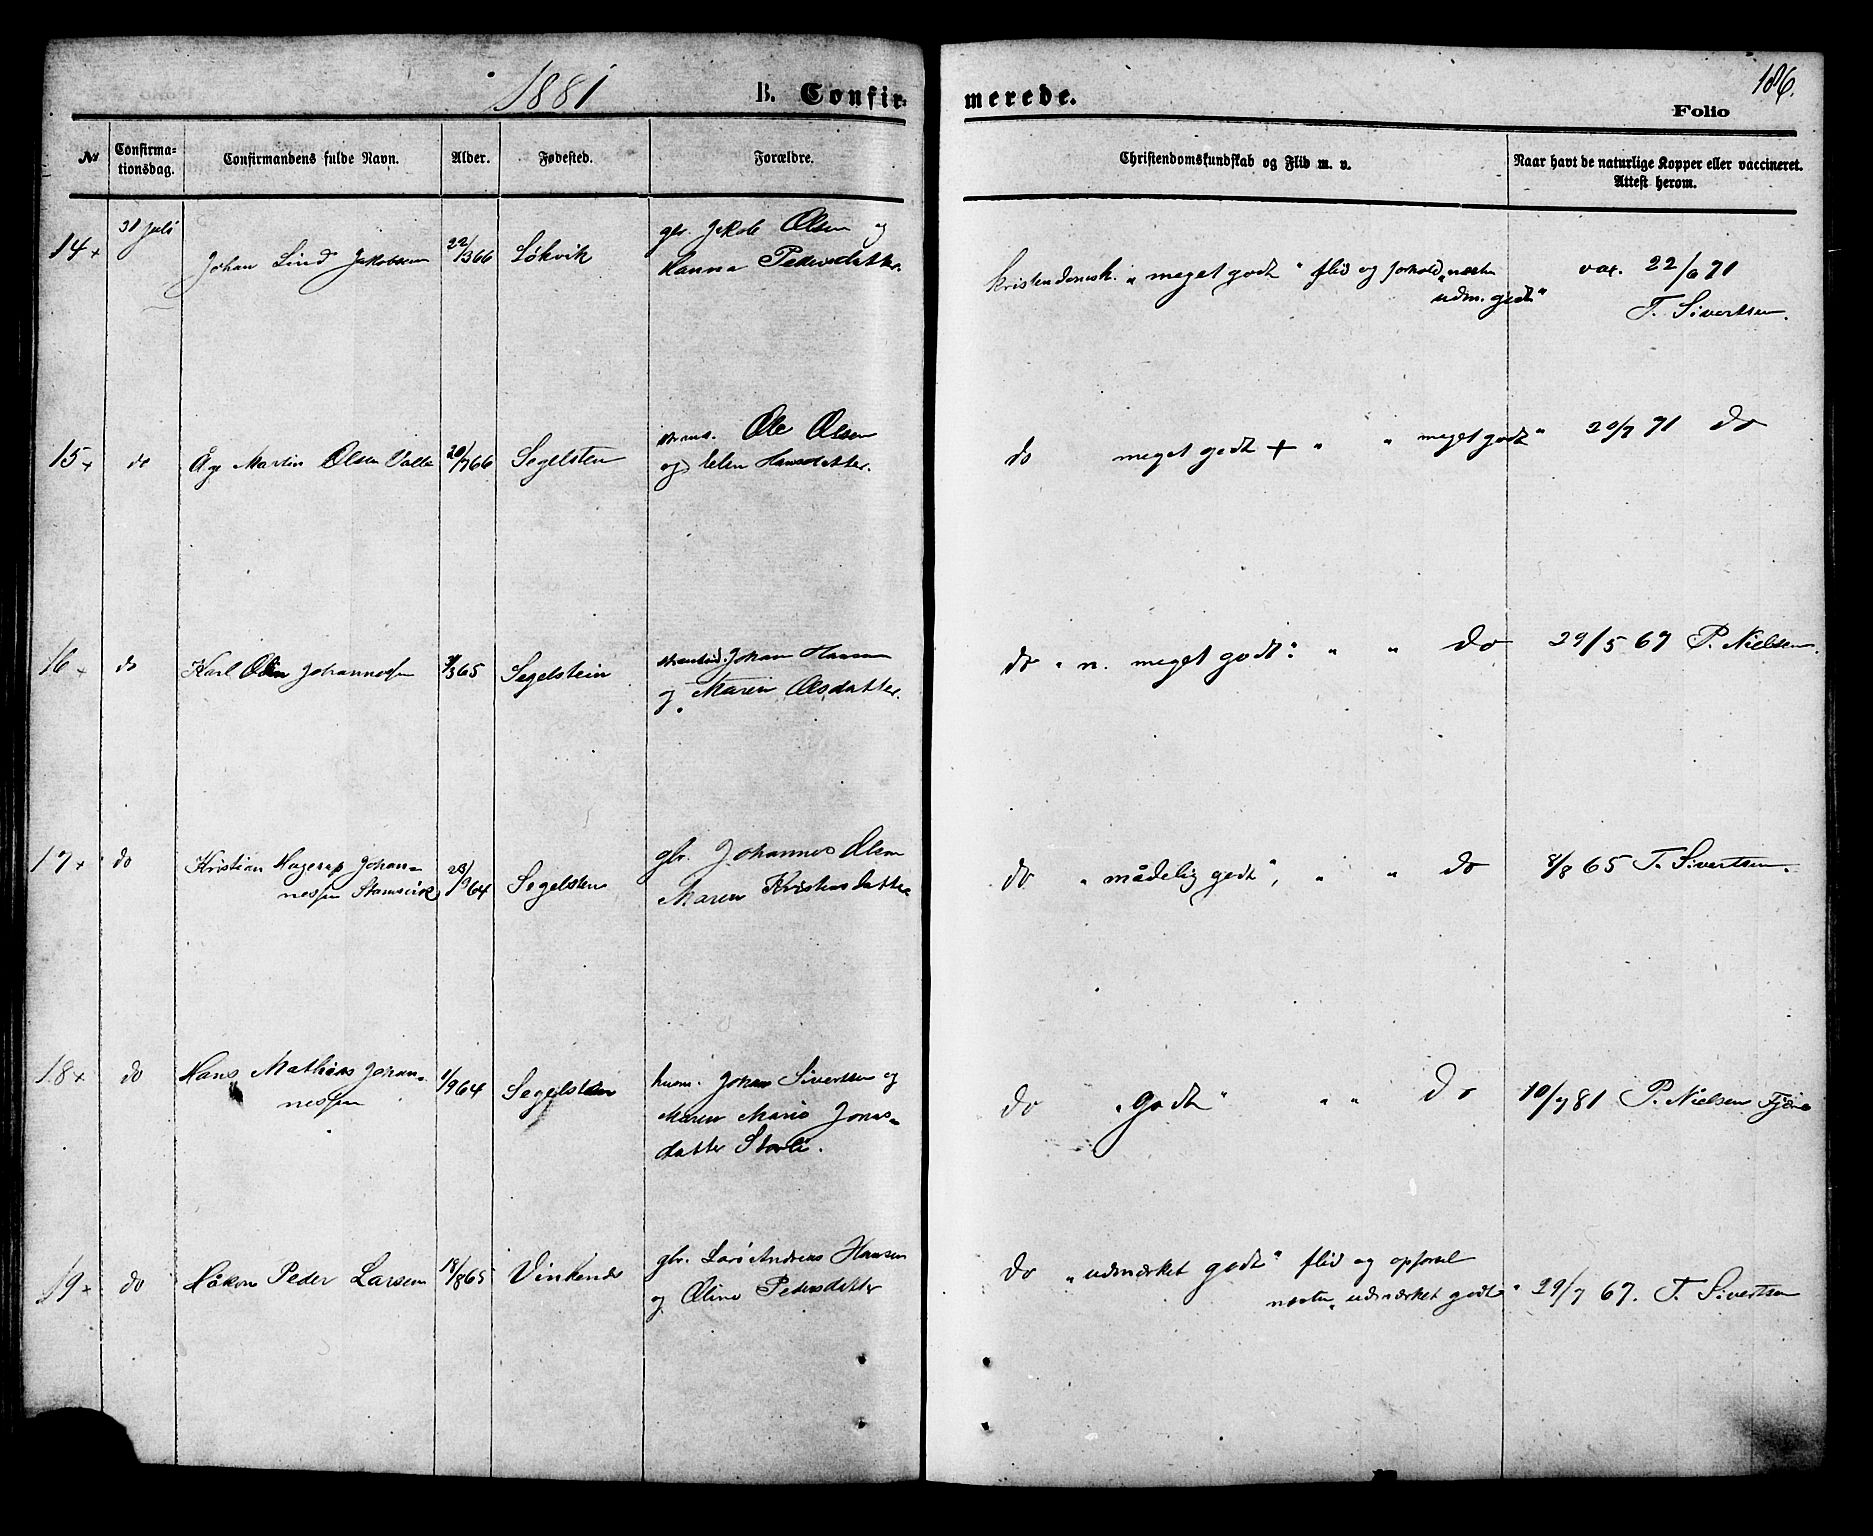 1881
B. Confir-
merede.
186.
Folio
No
Confirma-
tionsdag.
Confirmandens fulde Navn.
Alder.
Fødested.
Forældre.
Christendomskundskab og Flid m. v.
Naar havt de naturlige Kopper eller vaccineret.
Attest herom.
14 +
31 Juli
Johan Lind Jakobsen
22/3 66
Søkvik
gbr. Jakob Olsen og
Hanna Pedersdatter.
kristendomsk. „meget godt“ flid og forhold „næsten
udm. godt“
vax. 22/6 71
T. Sivertsen.
15 +
do
Åge Martin Olsen Valla
20/7 66
Segelsten
Ole Olsen
og Elen Hansdatter.
do meget godt + " " meget godt“
20/7 71 do
16 +
do
Karl Olsen Johannesen
65
Segelstein
Johan Hansen
og Maren Olsdatter.
do „n. meget godt“ " " do
29/5 67 P. Nielsen.
17 +
do
Kristian Hagerup Johan-
nessen
28/1 64
Segelsten
gbr. Johannes Olsen
Maren Kristensdatter
do „mådelig godt“, " " do
8/8 65 T. Sivertsen.
18 +
do
Hans Mathias Johan-
nessen
1/9 64
Segelsten
husm. Johan Sivertsen og
Maren Marie Jonas-
datter Storli.
do „godt“ " " do
10/7 81 P. Nielsen
19 +
do
Håkon Peder Larsen
18/8 65
Vinkenes
gbr. Lars Andreas Hansen
og Oline Pedersdatter
do „udmærket godt“ flid og opførsel
næsten „udmærket godt“
29/7 67. T. Sivertsen